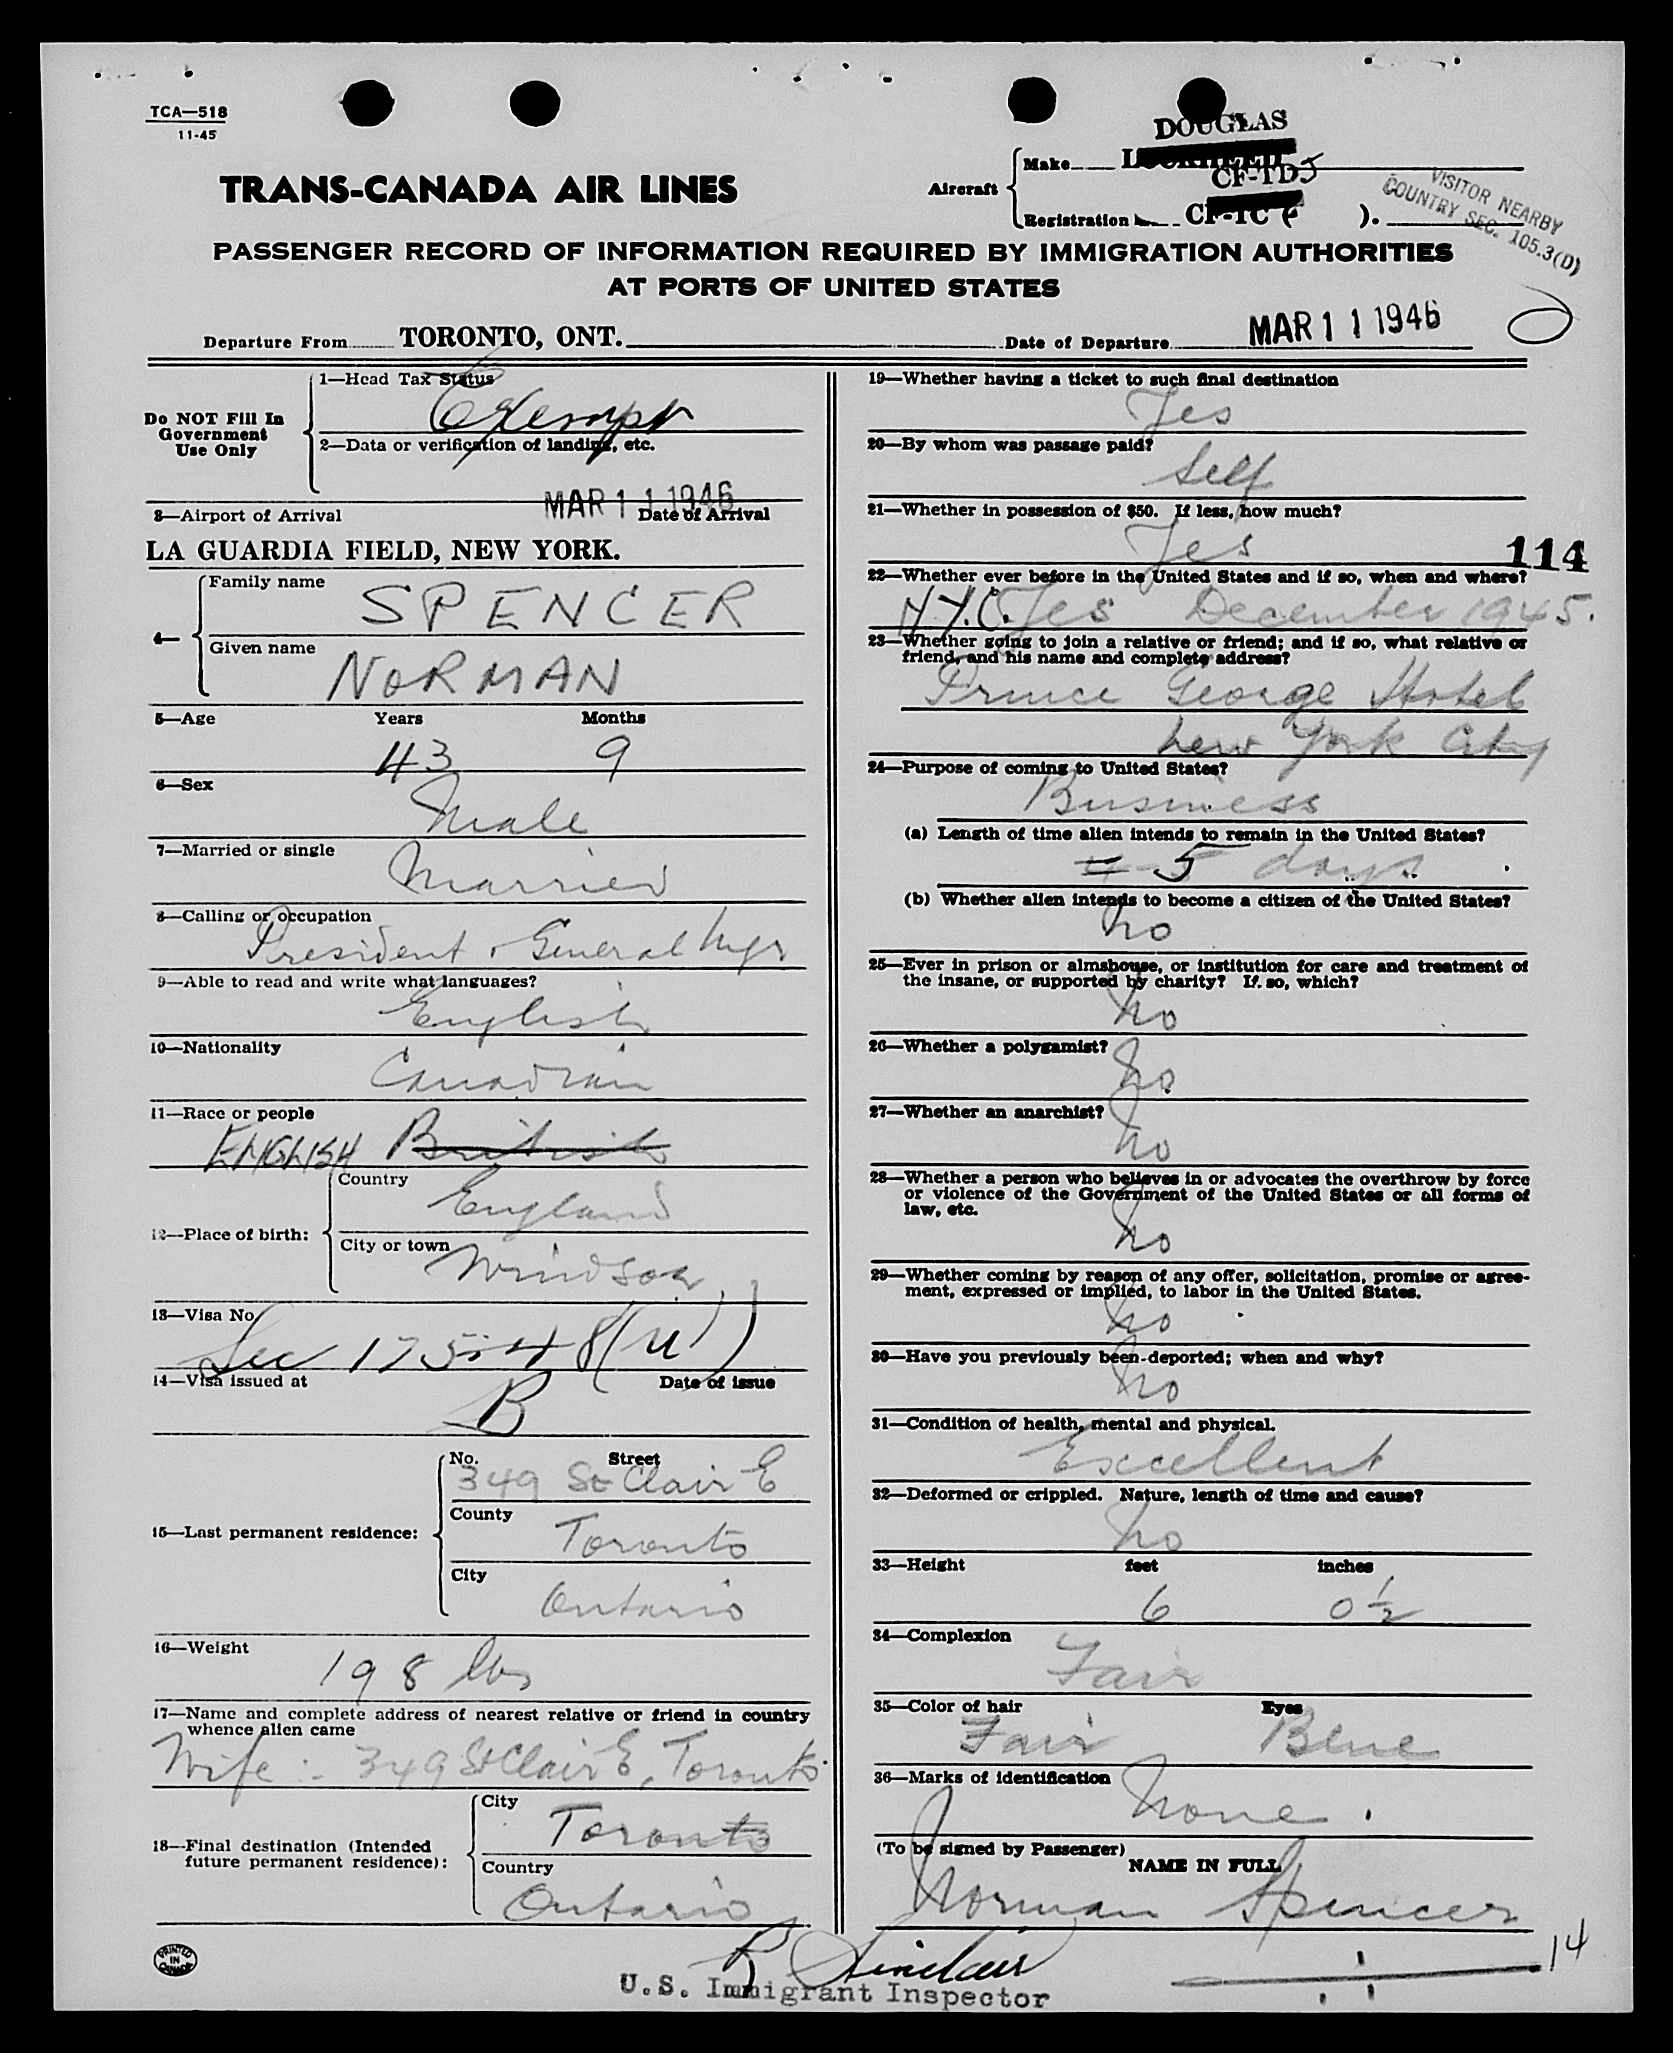 TCA—518
11-45
DOUGLAS
Make LOCKHEED
CF-TDJ
Aircraft
Registration CF-TC ( ).
VISITOR NEARBY
COUNTRY SEC. 105.3(D)
TRANS-CANADA AIR LINES
PASSENGER RECORD OF INFORMATION REQUIRED BY IMMIGRATION AUTHORITIES
AT PORTS OF UNITED STATES
Departure From TORONTO, ONT. Date of Departure MAR 11 1946
Do NOT Fill In
Government
Use Only
1—Head Tax Status
Exempt
2—Data or verification of landing, etc.
MAR 11 1946
3—Airport of Arrival Date of Arrival
LA GUARDIA FIELD, NEW YORK.
4—
Family name
SPENCER
Given name
NORMAN
5—Age Years Months
43 9
6—Sex
Male
7—Married or single
Married
8—Calling or occupation
President & General Mgr
9—Able to read and write what languages?
English
10—Nationality
Canadian
11—Race or people
ENGLISH British
12—Place of birth:
Country
England
City or town
Windsor
13—Visa No.
Sec 175.48(u)
14—Visa issued at Date of issue
B
15—Last permanent residence:
No. Street
349 St Clair E
County
Toronto
City
Ontario
16—Weight
198 lbs
17—Name and complete address of nearest relative or friend in country
whence alien came
Wife :- 349 St Clair E, Toronto.
18—Final destination (Intended
future permanent residence):
City
Toronto
Country
Ontario
PRINTED
IN
CANADA
19—Whether having a ticket to such final destination
Yes
20—By whom was passage paid?
Self
21—Whether in possession of $50. If less, how much?
Yes
114
22—Whether ever before in the United States and if so, when and where?
N.Y.C. Yes December 1945.
23—Whether going to join a relative or friend; and if so, what relative or
friend, and his name and complete address?
Prince George Hotel
New York City
24—Purpose of coming to United States?
Business
(a) Length of time alien intends to remain in the United States?
4 5 days
(b) Whether alien intends to become a citizen of the United States?
No
25—Ever in prison or almshouse, or institution for care and treatment of
the insane, or supported by charity? If so, which?
No
26—Whether a polygamist?
No
27—Whether an anarchist?
No
28—Whether a person who believes in or advocates the overthrow by force
or violence of the Government of the United States or all forms of
law, etc.
No
29—Whether coming by reason of any offer, solicitation, promise or agree-
ment, expressed or implied, to labor in the United States.
No
30—Have you previously been deported; when and why?
No
31—Condition of health, mental and physical.
Excellent
32—Deformed or crippled. Nature, length of time and cause?
No
33—Height feet inches
6 0 ½
34—Complexion
Fair
35—Color of hair Eyes
Fair Blue
36—Marks of identification
None.
(To be signed by Passenger)
NAME IN FULL
Norman Spencer
R Sinclair
U.S. Immigrant Inspector
14